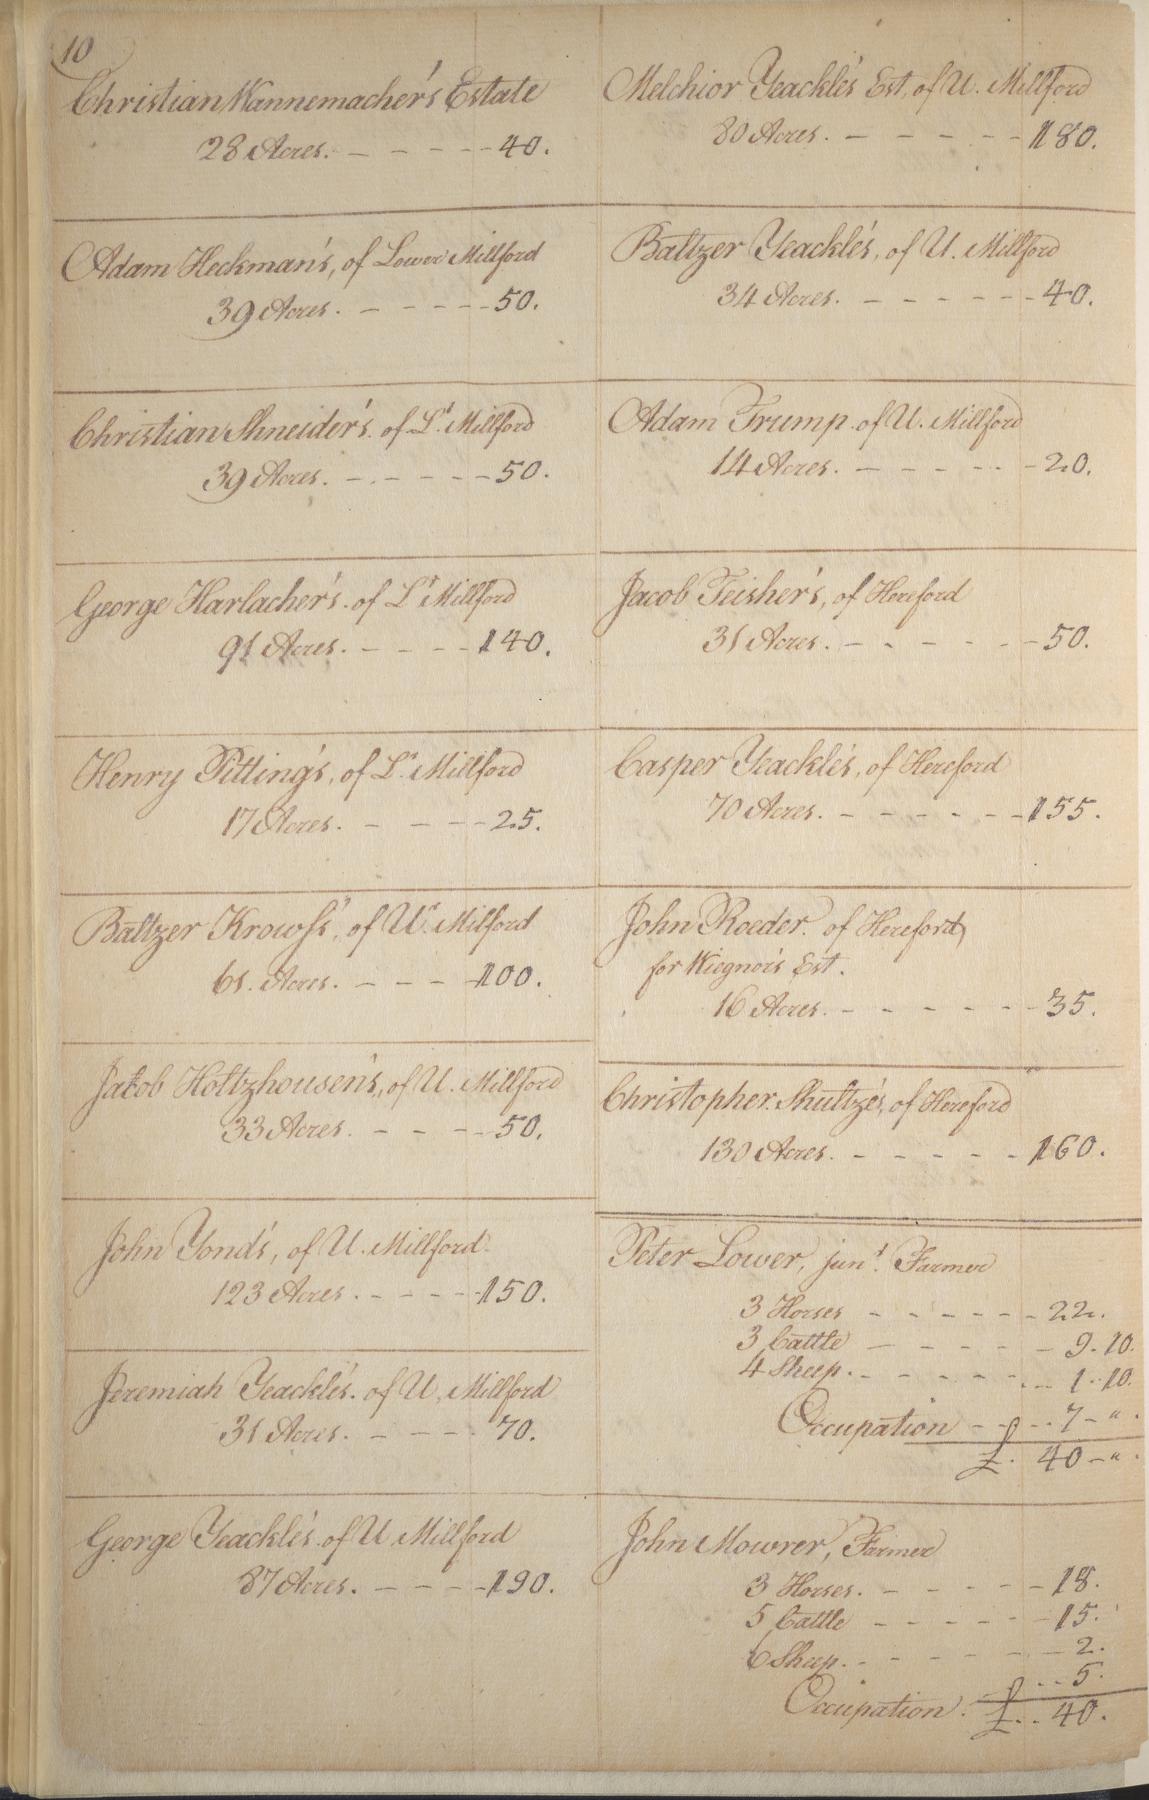 10
Christian Wannemacher's Estate
28 Acres. - - - - - 40.
Adam Heckman's, of Lower Millford
39 Acres. - - - - - 50.
Christian Shneider's. of Lr. Millford
39 Acres. - - - - - 50.
George Harlacher's. of Lr Millford
91 Acres. - - - - 140.
Henry Pitting's, of Lr. Millford
17 Acres. - - - - 25.
Baltzer Krowss', of Ur. Milford
61. Acres. - - - 100.
Jakob Holtzhousen's, of U. Millford
33 Acres. - - - - 50.
John Yond's, of U. Millford.
123 Acres. - - - - - 150.
Jeremiah Yeackle's. of U. Millford
31 Acres. - - - - 70.
George Yeackle's. of U Millford
87 Acres. - - - - 190.
Melchior Yeackle's Est, of U. Millford
80 Acres. - - - - - 180.
Baltzer Yeackle's, of U. Millford
34 Acres. - - - - - - 40.
Adam Trump. of U. Millford
14 Acres. - - - - - - 20.
Jacob Feisher's, of Hereford
31 Acres. - - - - - - 50.
Casper Yeackle's, of Hereford
70 Acres. - - - - - - 155.
John Roeder. of Hereford,
for Wiegner's Est.
16 Acres. - - - - - - 35.
Christopher Shultze's, of Hereford
130 Acres. - - - - - 160.
Peter Lower, junr. Farmer
3 Horses - - - - - - 22.
3 Cattle - - - - - 9. 10.
4 Sheep. - - - - - - 1. 10.
Occupation - - - - 7 - " .
£. 40 - " .
John Mowrer, Farmer
3 Horses. - - - - - 18.
5 Cattle - - - - - 15.
6 Sheep. - - - - - 2.
Occupation. - - - 5.
£. . . 40.